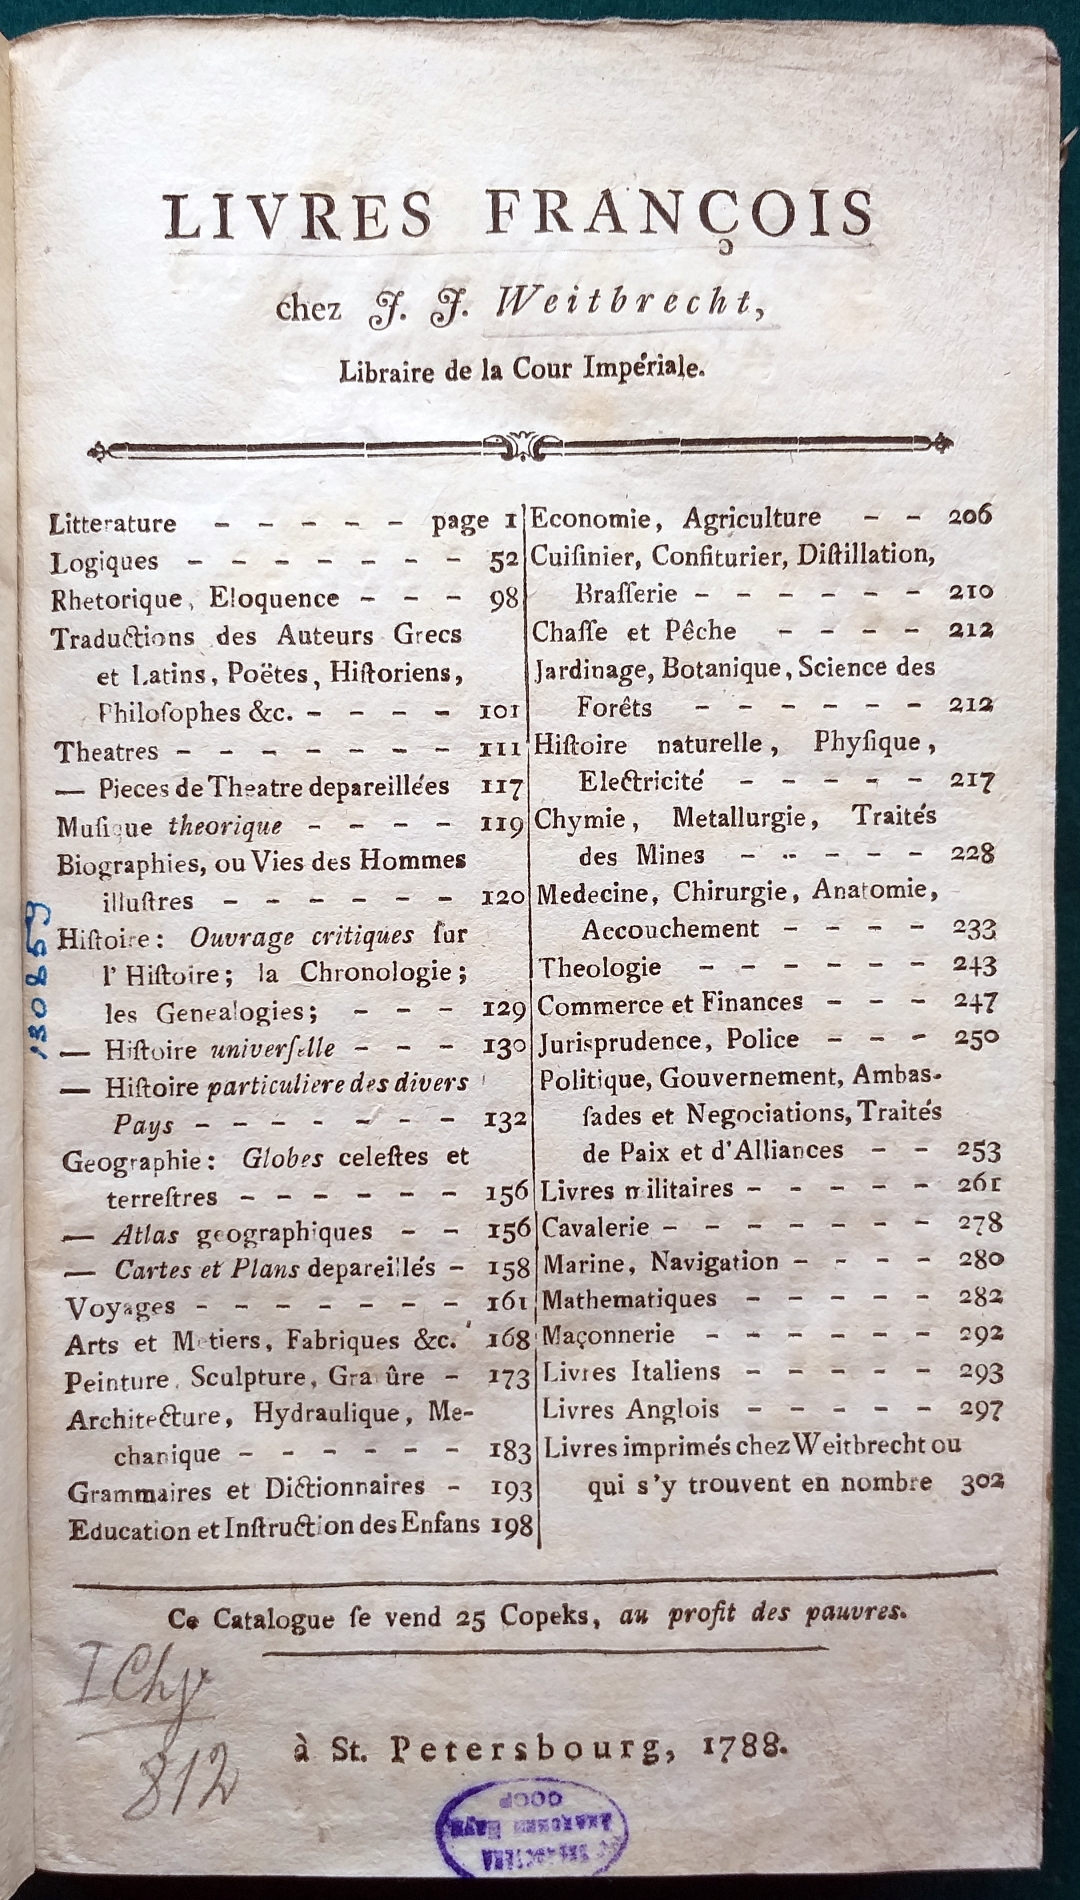 LIVRES FRANÇOIS
chez J. J. Weitbrecht,
Libraire de la Cour Impériale.
Litterature – – – – – page 1
Logiques – – – – – – – 52
Rhetorique, Eloquence – – – 98
Traductions des Auteurs Grecs
et Latins, Poëtes, Hiſtoriens,
Philoſophes &c. – – – – 101
Theatres – – – – – – – 111
— Pieces de Theatre depareillées 117
Muſique theorique – – – – 119
Biographies, ou Vies des Hommes
illuſtres – – – – – – 120
Hiſtoire: Ouvrage critiques ſur
l'Hiſtoire; la Chronologie;
les Genealogies; – – – 129
— Hiſtoire univerſelle – – – 130
— Hiſtoire particuliere des divers
Pays – – – – – – – 132
Geographie: Globes celeſtes et
terreſtres – – – – – – 156
— Atlas geographiques – – 156
— Cartes et Plans depareillés – 158
Voyages – – – – – – – 161
Arts et Metiers, Fabriques &c. 168
Peinture, Sculpture, Gravûre – 173
Architecture, Hydraulique, Me-
chanique – – – – – – 183
Grammaires et Dictionnaires – 193
Education et Inſtruction des Enfans 198
Economie, Agriculture – – 206
Cuiſinier, Confiturier, Diſtillation,
Braſſerie – – – – – – 210
Chaſſe et Pêche – – – – 212
Jardinage, Botanique, Science des
Forêts – – – – – – 212
Hiſtoire naturelle, Phyſique,
Electricité – – – – – 217
Chymie, Metallurgie, Traités
des Mines – – – – – 228
Medecine, Chirurgie, Anatomie,
Accouchement – – – – 233
Theologie – – – – – – 243
Commerce et Finances – – – 247
Jurisprudence, Police – – – 250
Politique, Gouvernement, Ambas-
ſades et Negociations, Traités
de Paix et d'Alliances – – 253
Livres militaires – – – – – 261
Cavalerie – – – – – – – 278
Marine, Navigation – – – – 280
Mathematiques – – – – – 282
Maçonnerie – – – – – – 292
Livres Italiens – – – – – 293
Livres Anglois – – – – – 297
Livres imprimés chez Weitbrecht ou
qui s'y trouvent en nombre 302
130859
Ce Catalogue ſe vend 25 Copeks, au profit des pauvres.
à St. Petersbourg, 1788.
812
СССР